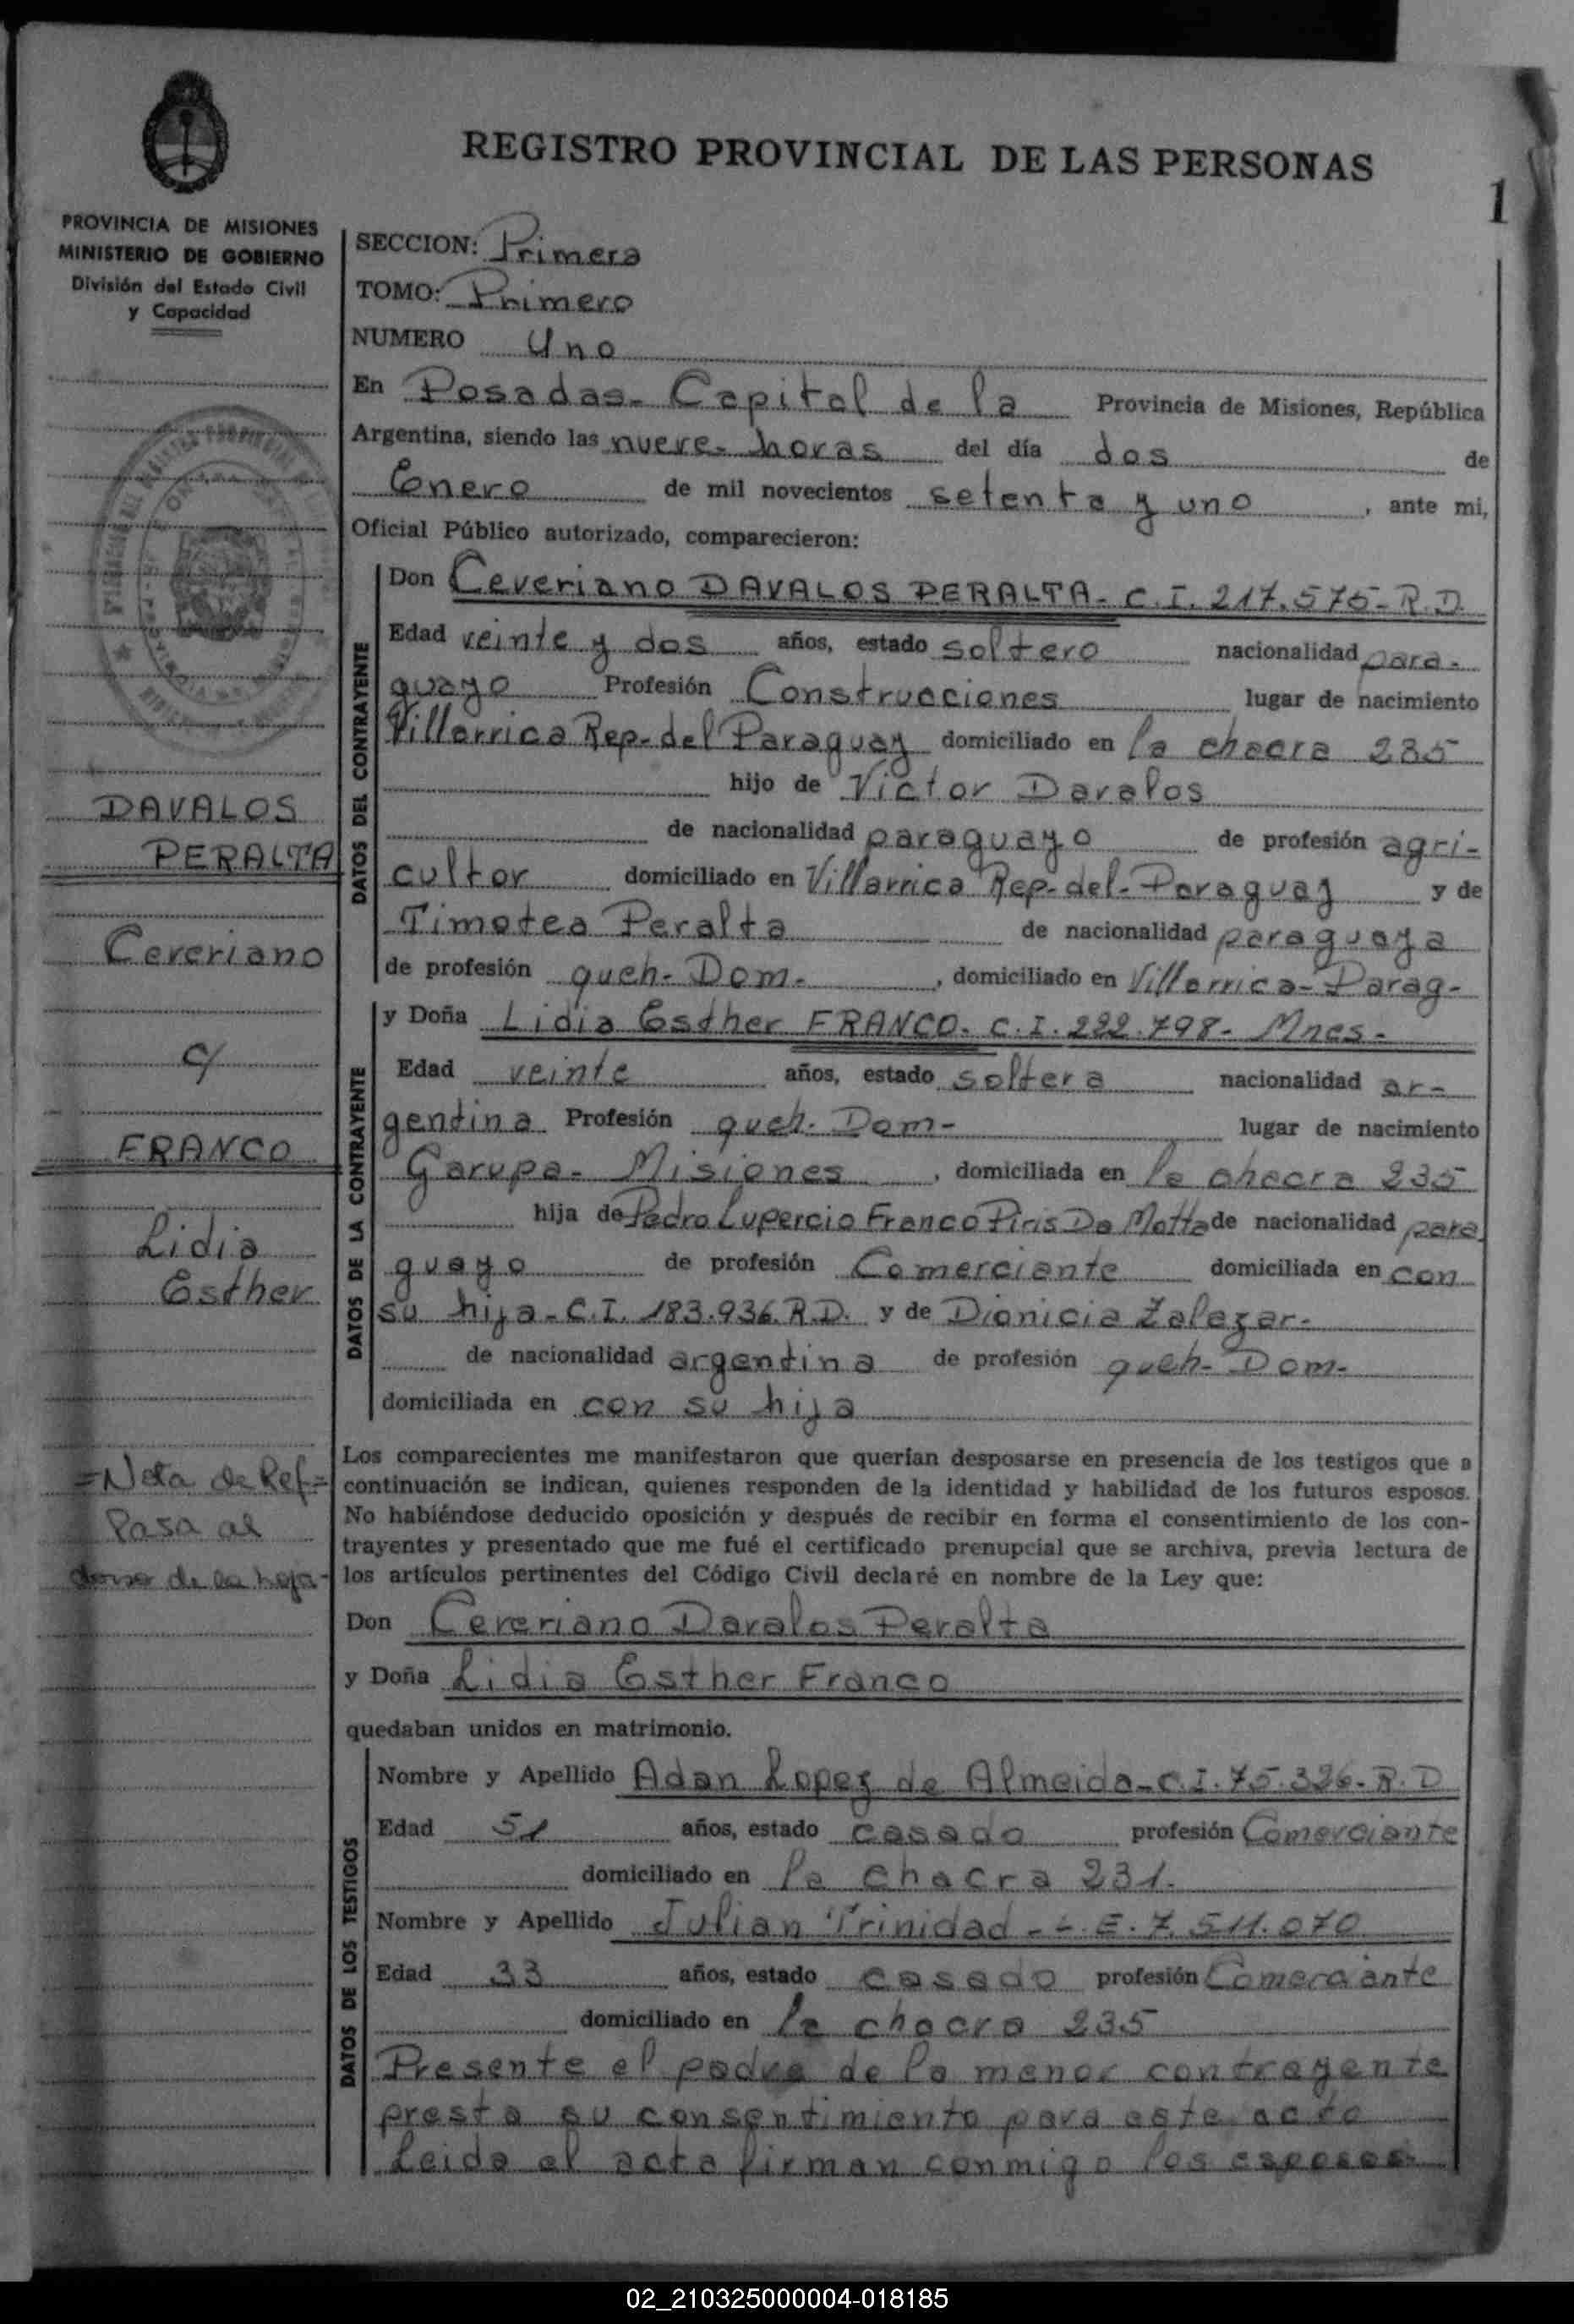 REGISTRO PROVINCIAL DE LAS PERSONAS
1
PROVINCIA DE MISIONES
MINISTERIO DE GOBIERNO
División del Estado Civil
y Capacidad
SECCION: Primera
TOMO: Primero
NUMERO Uno
En Posadas- Capital de la Provincia de Misiones, República
Argentina, siendo las nueve- horas del día dos de
Enero de mil novecientos setenta y uno, ante mi,
Oficial Público autorizado, comparecieron:
DATOS DEL CONTRAYENTE
Don Ceveriano DAVALOS PERALTA- C.I. 217.575- R.D.
Edad veinte y dos años, estado soltero nacionalidad para-
guayo Profesión Construcciones lugar de nacimiento
Villarrica Rep- del Paraguay domiciliado en la chacra 235
hijo de Victor Davalos
de nacionalidad paraguayo de profesión agri-
cultor domiciliado en Villarrica Rep- del- Paraguay y de
Timotea Peralta de nacionalidad paraguaya
de profesión queh- Dom-, domiciliado en Villarrica- Parag-
DATOS DE LA CONTRAYENTE
y Doña Lidia Esther FRANCO- C.I. 222.798- Mnes-
Edad veinte años, estado soltera nacionalidad ar-
gentina Profesión queh- Dom- lugar de nacimiento
Garupa- Misiones, domiciliada en la chacra 235
hija de Pedro Lupercio Franco Piris Da Motta de nacionalidad para
guayo de profesión Comerciante domiciliada en con
su hija- C.I. 183.936 R.D. y de Dionicia Zalazar-
de nacionalidad argentina de profesión queh- Dom-
domiciliada en con su hija
Los comparecientes me manifestaron que querían desposarse en presencia de los testigos que a
continuación se indican, quienes responden de la identidad y habilidad de los futuros esposos.
No habiéndose deducido oposición y después de recibir en forma el consentimiento de los con-
trayentes y presentado que me fué el certificado prenupcial que se archiva, previa lectura de
los artículos pertinentes del Código Civil declaré en nombre de la Ley que:
Don Ceveriano Davalos Peralta
y Doña Lidia Esther Franco
quedaban unidos en matrimonio.
DATOS DE LOS TESTIGOS
Nombre y Apellido Adan Lopez de Almeida- C.I. 75.326- R.D
Edad 51 años, estado casado profesión Comerciante
domiciliado en la chacra 231.
Nombre y Apellido Julian Trinidad - L.E. 7.511.070
Edad 33 años, estado casado profesión Comerciante
domiciliado en la chacra 235
Presente el padre de la menor contrayente
presta su consentimiento para este acto
Leida el acta firman conmigo los esposos
DAVALOS
PERALTA
Ceveriano
c/
FRANCO
Lidia
Esther
=Nota de Ref=
Pasa al
dorso de la hoja-
02_210325000004-018185